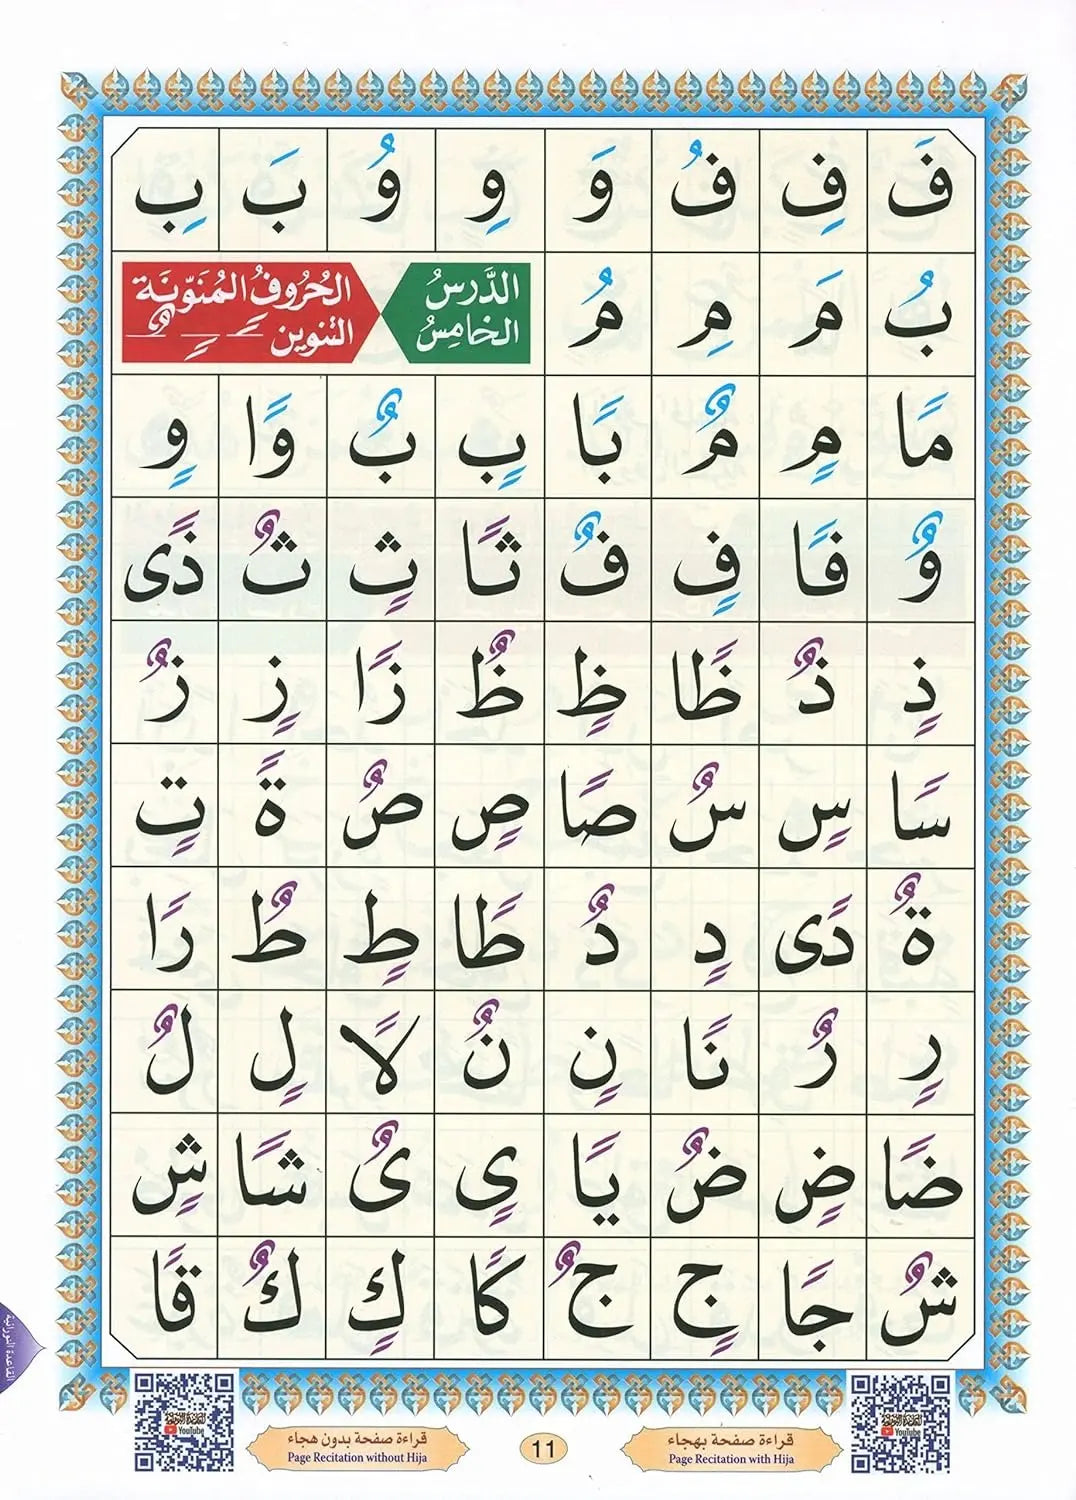 فَ فِ فُ وَ وِ وُ بَ بِ
بُ مَ مِ مُ
الدَّرسُ الخامِسُ
الحُروفُ المُنَوّنَة
التنوين ـً ـٍ ـٌ
مًا مٍ مٌ بًا بٍ بٌ وًا وٍ
وٌ فًا فٍ فٌ ثًا ثٍ ثٌ ذًى
ذٍ ذٌ ظًا ظٍ ظٌ زًا زٍ زٌ
سًا سٍ سٌ صًا صٍ صٌ ةً تٍ
ةٌ دًى دٍ دٌ طًا طٍ طٌ رًا
رٍ رٌ نًا نٍ نٌ لًا لٍ لٌ
ضًا ضٍ ضٌ يًا ىٍ ىٌ شًا شٍ
شٌ جًا جٍ جٌ كًا كٍ كٌ قًا
القاعدة النورانية
YouTube
YouTube
قراءة صفحة بهجاء
Page Recitation with Hija
11
قراءة صفحة بدون هجاء
Page Recitation without Hija